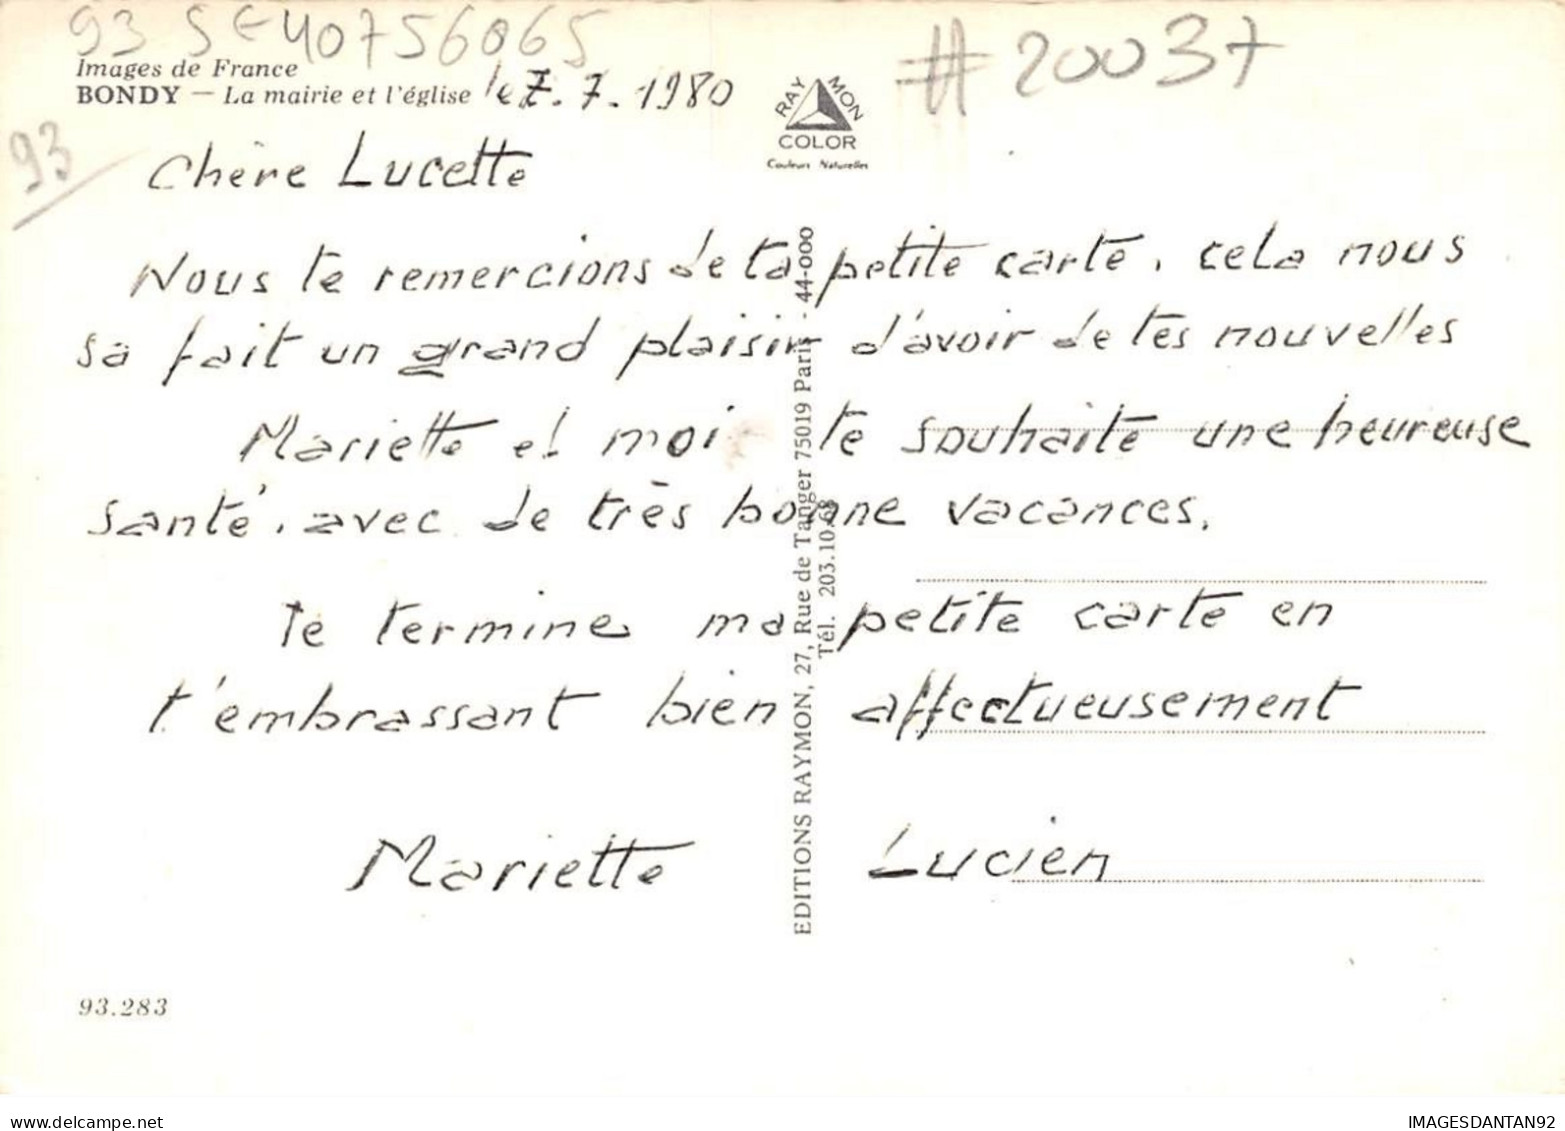 93 SE 40756065
# 20037
Images de France
BONDY — La mairie et l'église le 7. 7. 1980
RAYMON
COLOR
Couleurs Naturelles
93
Chère Lucette
Nous te remercions de ta petite carte. cela nous
sa fait un grand plaisir d'avoir de tes nouvelles
Mariette et moi te souhaite une heureuse
santé. avec de très bonne vacances.
Je termine ma petite carte en
t'embrassant bien affectueusement
Mariette Lucien
EDITIONS RAYMON, 27, Rue de Tanger 75019 Paris - 44-000
Tél. 203.10.68
93.283
www.delcampe.net
IMAGESDANTAN92